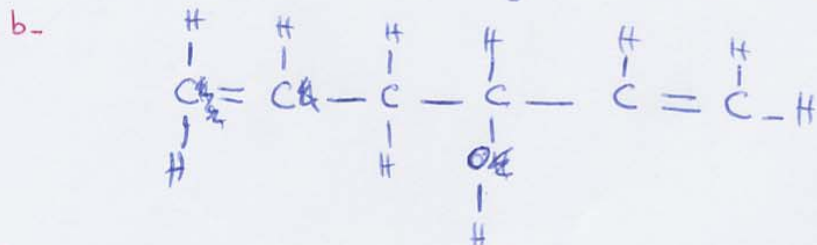 b-
H H H H H H
C = C — C — C — C = C - H
H H O
H